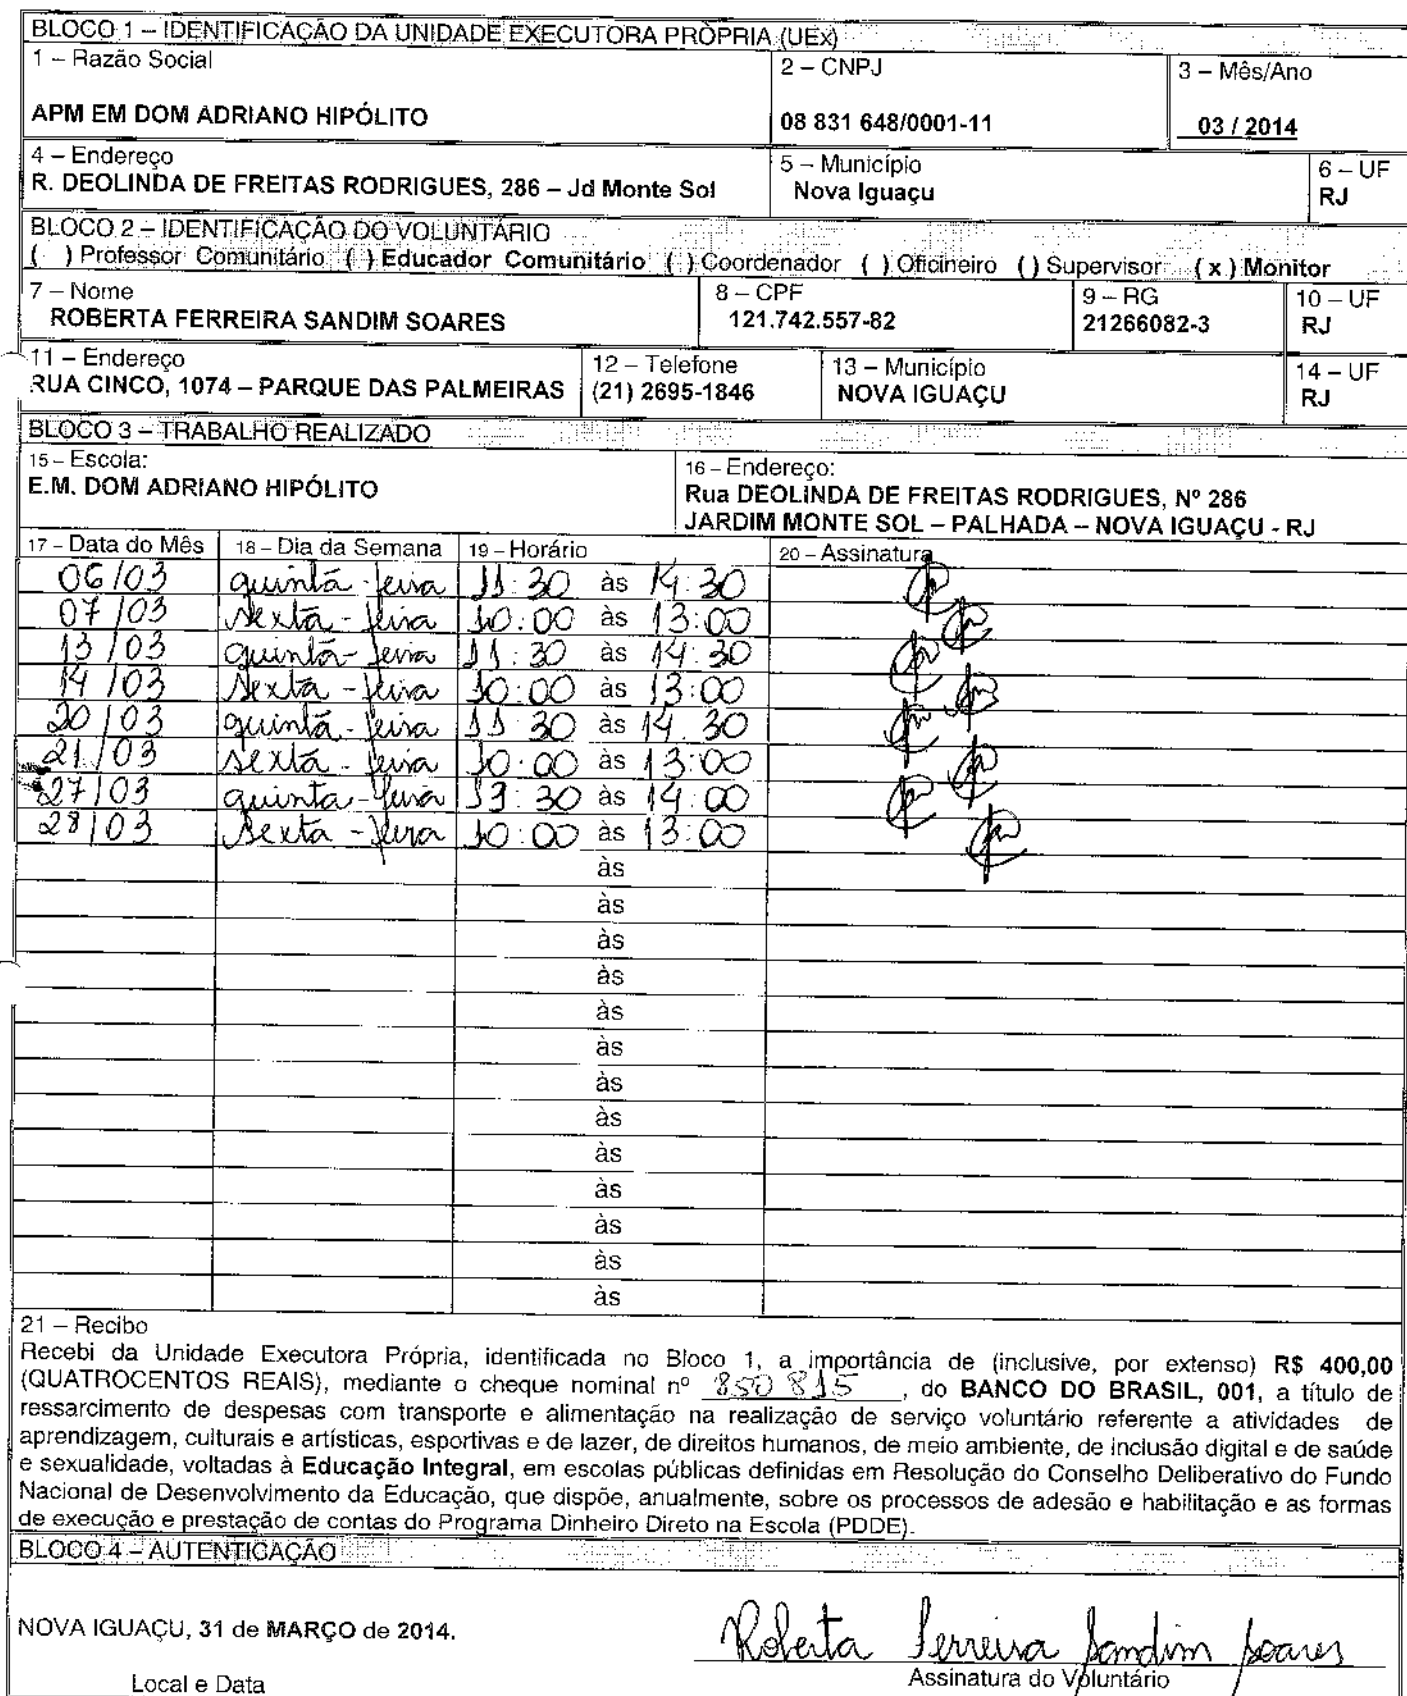 BLOCO 1 – IDENTIFICAÇÃO DA UNIDADE EXECUTORA PRÓPRIA (UEx)
1 – Razão Social 2 – CNPJ 3 – Mês/Ano
APM EM DOM ADRIANO HIPÓLITO 08 831 648/0001-11 03 / 2014
4 – Endereço 5 – Município 6 – UF
R. DEOLINDA DE FREITAS RODRIGUES, 286 – Jd Monte Sol Nova Iguaçu RJ
BLOCO 2 – IDENTIFICAÇÃO DO VOLUNTÁRIO
( ) Professor Comunitário ( ) Educador Comunitário ( ) Coordenador ( ) Oficineiro ( ) Supervisor ( x ) Monitor
7 – Nome 8 – CPF 9 – RG 10 – UF
ROBERTA FERREIRA SANDIM SOARES 121.742.557-82 21266082-3 RJ
11 – Endereço 12 – Telefone 13 – Município 14 – UF
RUA CINCO, 1074 – PARQUE DAS PALMEIRAS (21) 2695-1846 NOVA IGUAÇU RJ
BLOCO 3 – TRABALHO REALIZADO
15 – Escola: 16 – Endereço:
E.M. DOM ADRIANO HIPÓLITO Rua DEOLINDA DE FREITAS RODRIGUES, Nº 286
JARDIM MONTE SOL – PALHADA – NOVA IGUAÇU - RJ
17 – Data do Mês 18 – Dia da Semana 19 – Horário 20 – Assinatura
06/03 quinta-feira 11:30 às 14:30
07/03 sexta-feira 10:00 às 13:00
13/03 quinta-feira 11:30 às 14:30
14/03 sexta-feira 10:00 às 13:00
20/03 quinta-feira 11:30 às 14:30
21/03 sexta-feira 10:00 às 13:00
27/03 quinta-feira :30 às 14:00
28/03 sexta-feira 10:00 às 13:00
às
às
às
às
às
às
às
às
às
às
às
às
às
21 – Recibo
Recebi da Unidade Executora Própria, identificada no Bloco 1, a importância de (inclusive, por extenso) R$ 400,00
(QUATROCENTOS REAIS), mediante o cheque nominal nº 850815, do BANCO DO BRASIL, 001, a título de
ressarcimento de despesas com transporte e alimentação na realização de serviço voluntário referente a atividades de
aprendizagem, culturais e artísticas, esportivas e de lazer, de direitos humanos, de meio ambiente, de inclusão digital e de saúde
e sexualidade, voltadas à Educação Integral, em escolas públicas definidas em Resolução do Conselho Deliberativo do Fundo
Nacional de Desenvolvimento da Educação, que dispõe, anualmente, sobre os processos de adesão e habilitação e as formas
de execução e prestação de contas do Programa Dinheiro Direto na Escola (PDDE).
BLOCO 4 – AUTENTICAÇÃO
NOVA IGUAÇU, 31 de MARÇO de 2014. Roberta Ferreira Sandim Soares
Local e Data Assinatura do Voluntário